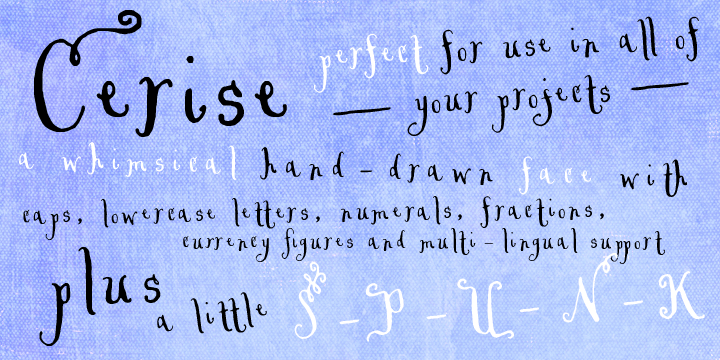 Cerise
perfect for use in all of
— your projects —
a whimsical hand-drawn face with
caps, lowercase letters, numerals, fractions,
currency figures and multi-lingual support
plus a little S-P-U-N-K